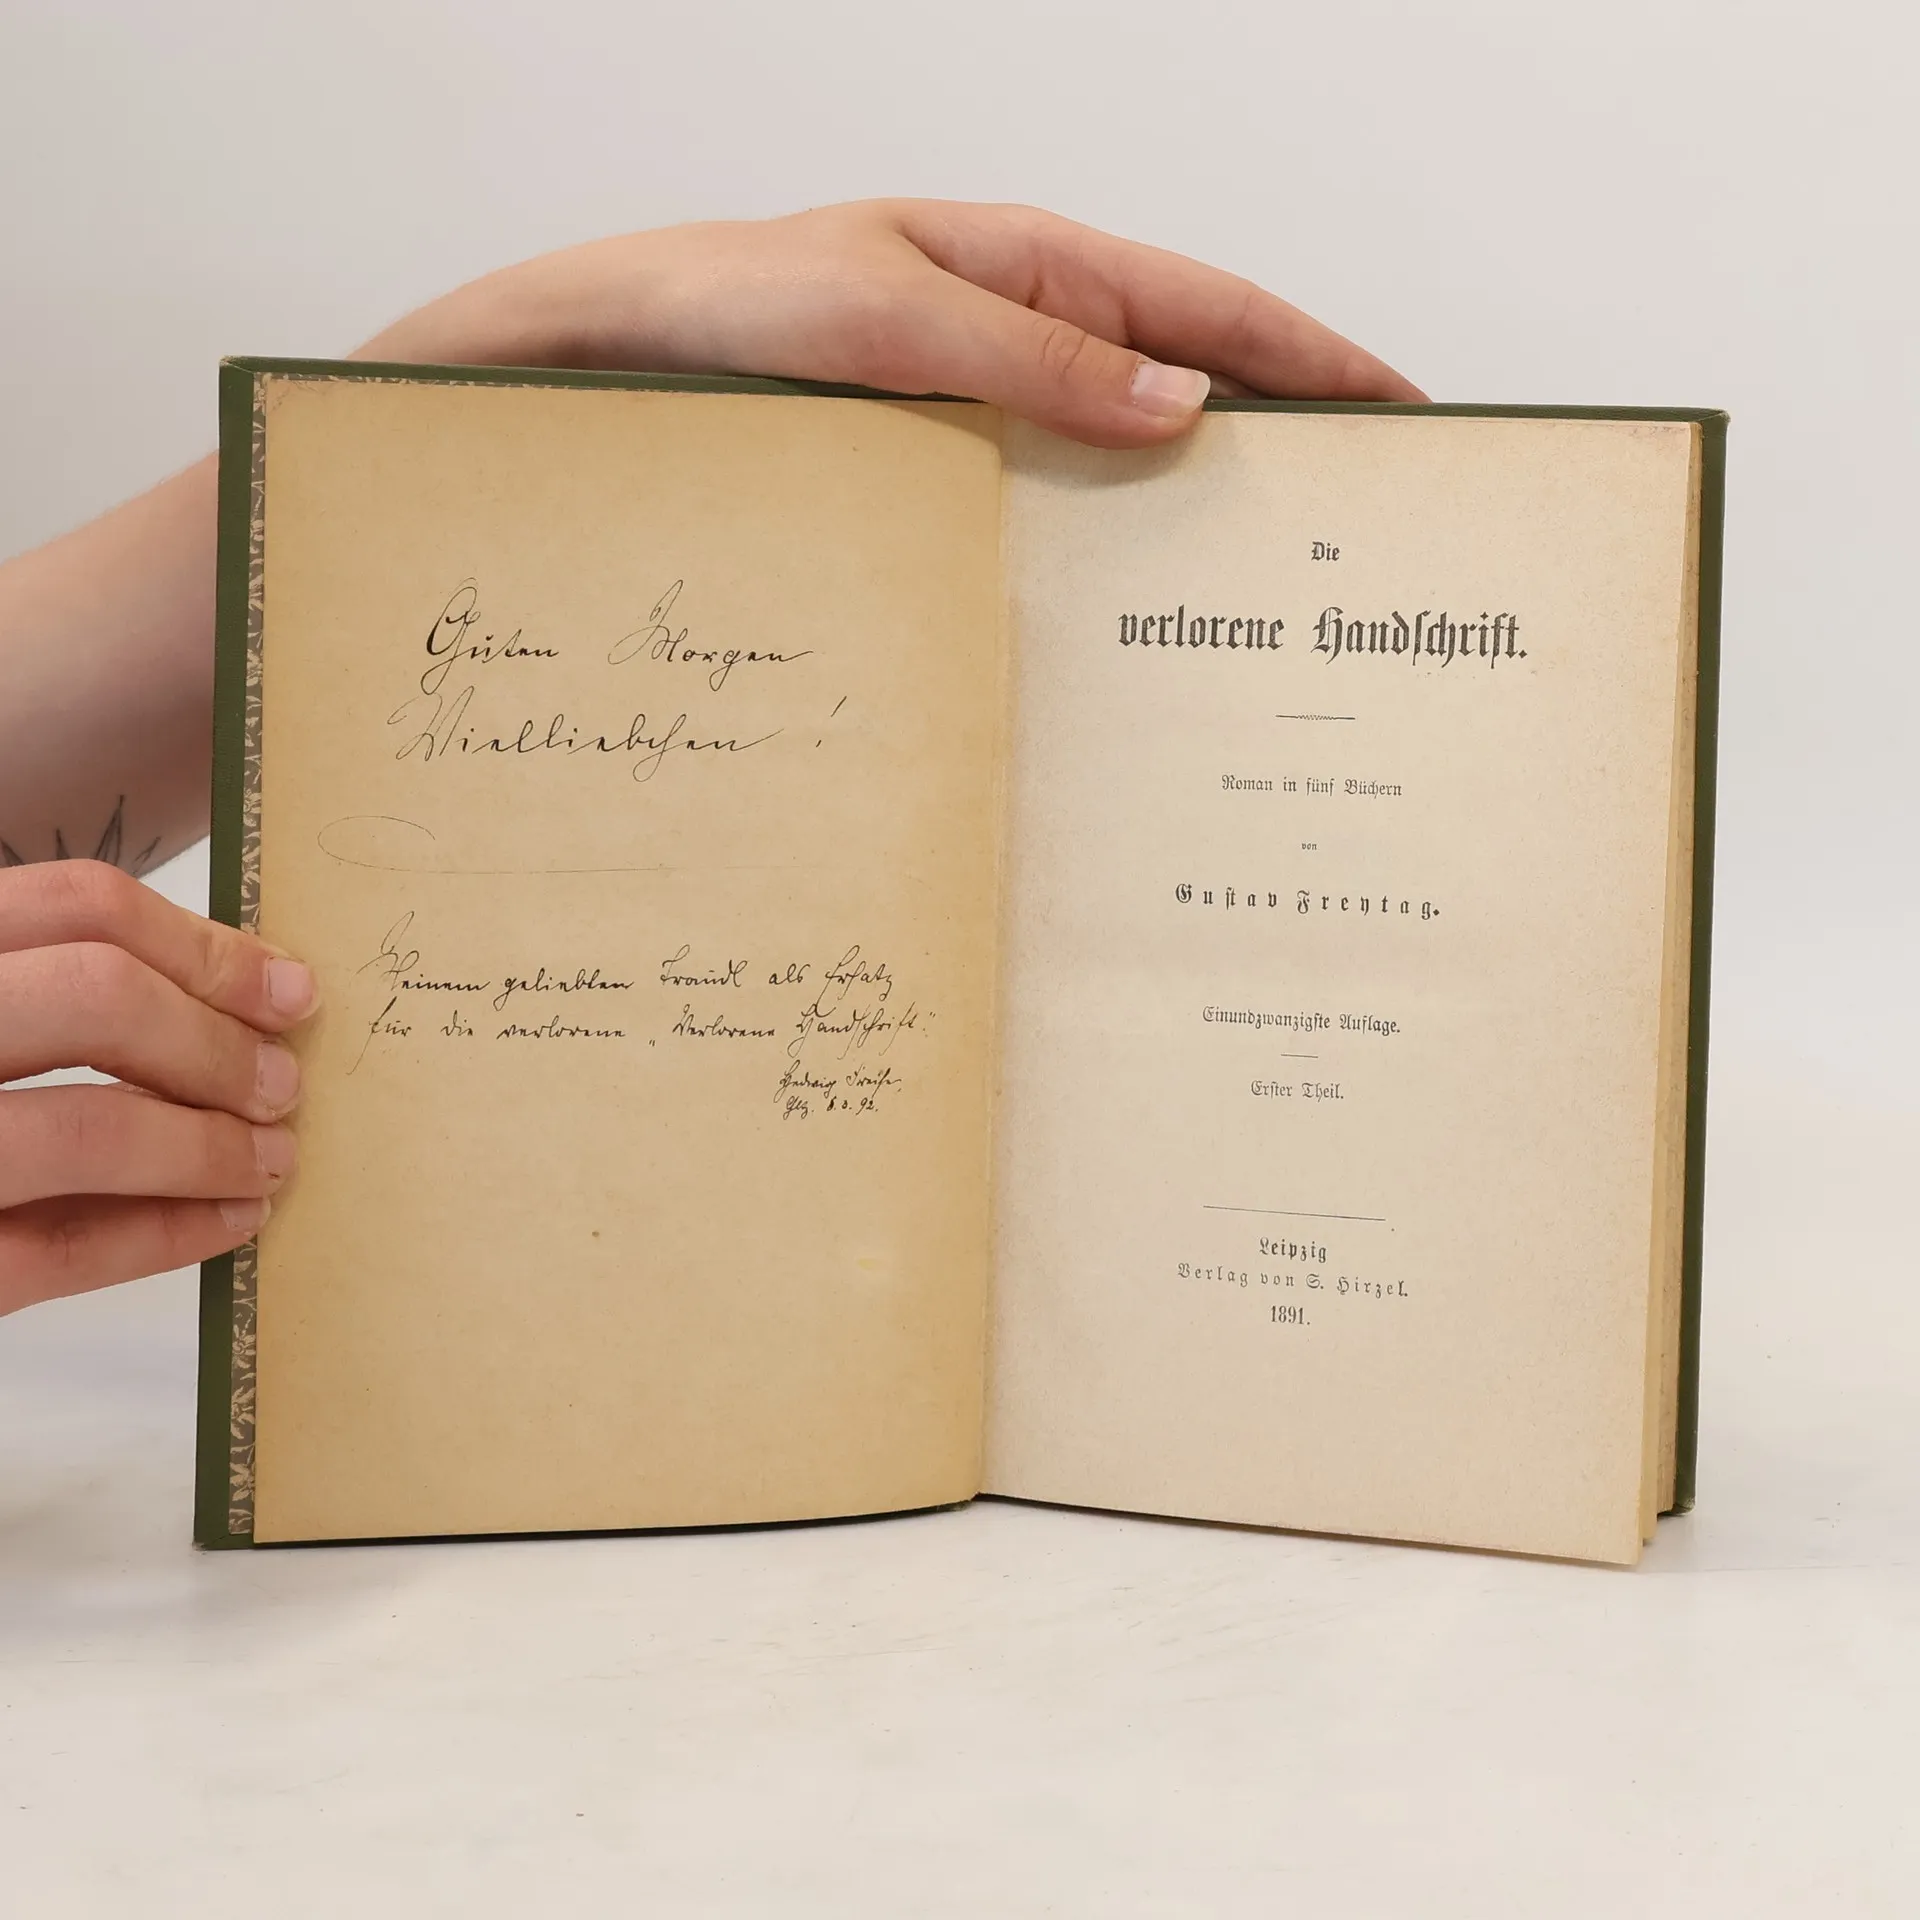 Guten Morgen
Vielliebchen !
Meinem geliebten Traudl als Ersatz
für die verlorene „Verlorene Handschrift".
Hedwig
3. 92.
Die
verlorene Handschrift.
Roman in fünf Büchern
von
Gustav Freytag.
Einundzwanzigste Auflage.
Erster Theil.
Leipzig
Verlag von S. Hirzel.
1891.